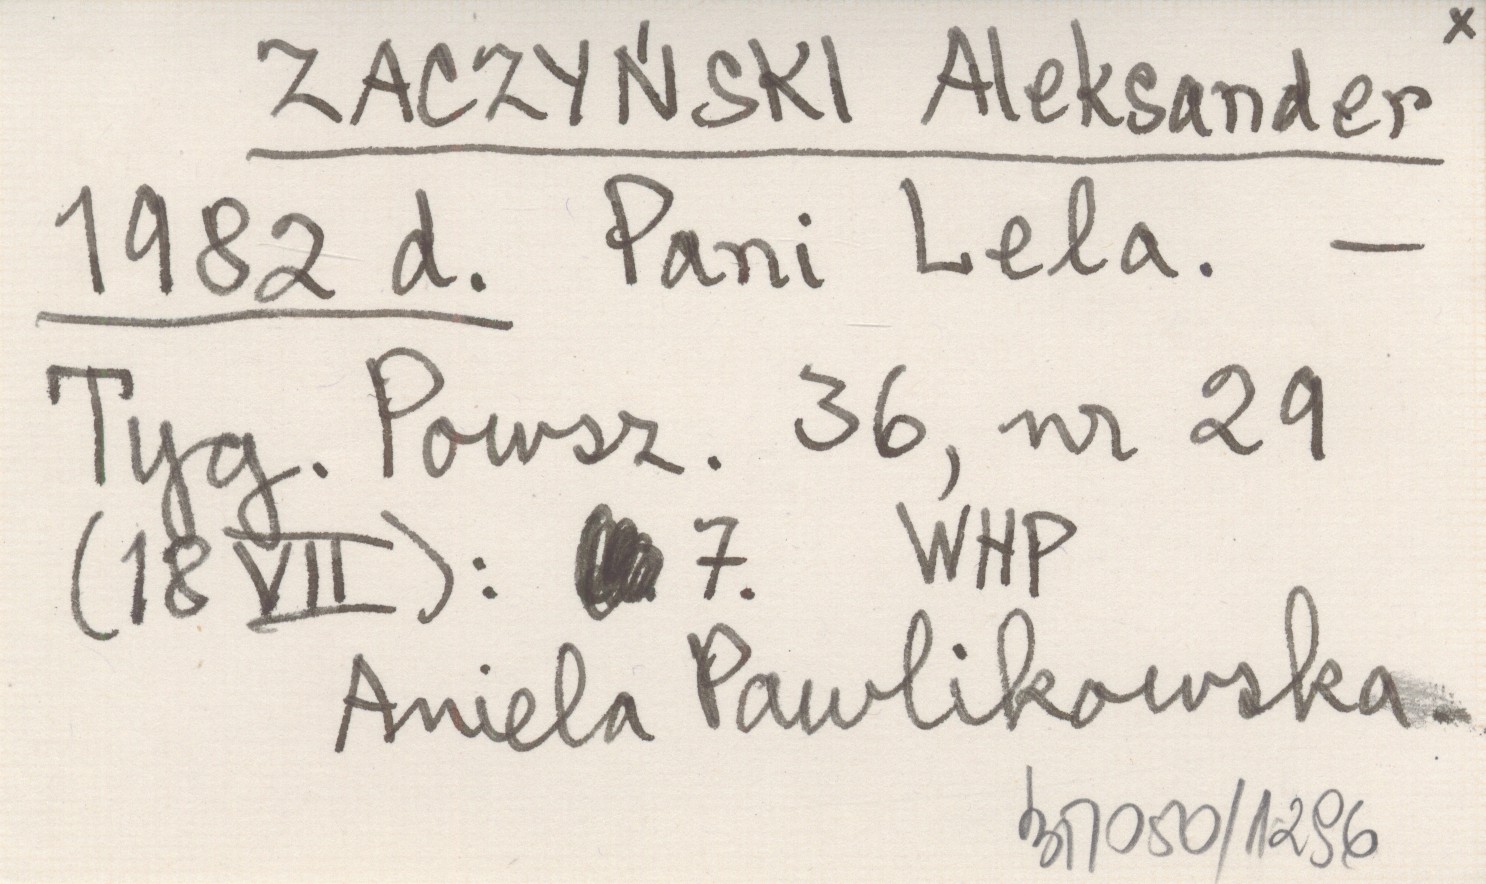 x
ZACZYŃSKI Aleksander
1982 d. Pani Lela. —
Tyg. Powsz. 36, nr 29
(18 VII): 7. WHP
Aniela Pawlikowska.
050/1296